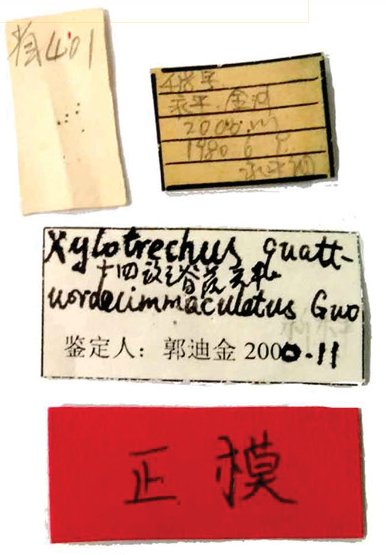 401
永平.
2000.m
1980.6.9.
Xylotrechus quatt-
十四斑脊虎天牛
uordecimmaculatus Guo
鉴定人：郭迪金 2000.11
正模